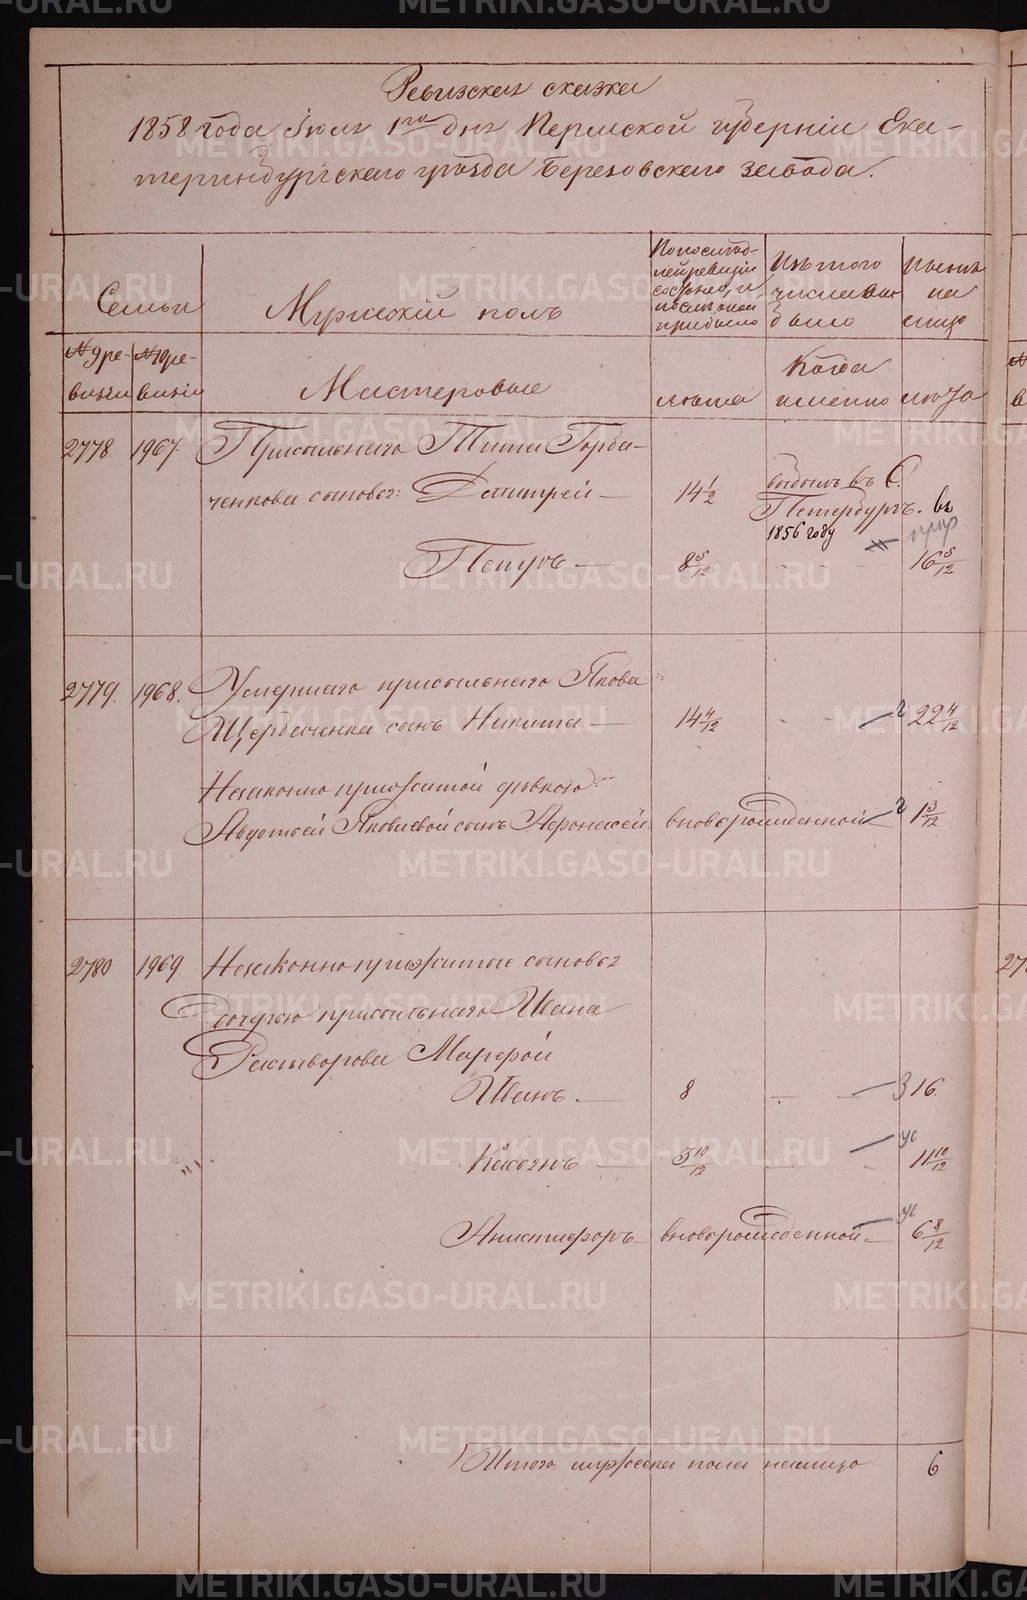 Ревизская сказка
1858 года Июля 1го дня Пермской губернiи Ека-
теринбургскаго уѣзда Березовскаго завода.
Семьи
Мужескiй полъ
По послѣд-
ней ревизiи
состояло, и
послѣ оной
прибыло
Изъ того
числа вы-
было
Нынѣ
на
лицо
№ 9 ре-
визiи
№ 10 ре-
визiи
Мастеровые
лѣта
Когда
именно
лѣта
2778 1967. Присыльнаго Тита Горба-
ченкова сыновья: Дмитрей — 14 1/2 выбылъ въ С.
Петербургъ. въ
1856 году
Петръ — 8 5/12 - - - 16 5/12
2779. 1968. Умершаго присыльнаго Якова
Щербаченка сынъ Никита — 14 4/12 - - 22 4/12
Незаконноприжитой дѣвкою
Авдотьей Яковлевой сынъ Афонасей вноворожденной 1 3/12
2780 1969 Незаконноприжитые сыновья
дочерью присыльнаго Ивана
Растворова Марфой
Иванъ. — 8 — — 3 16
Касьянъ — 3 10/12 — — ус 11 10/12
Анистифоръ — вноворожденной — ус 6 8/12
Итого мужеска пола налицо 6
27
METRIKI.GASO-URAL.RU